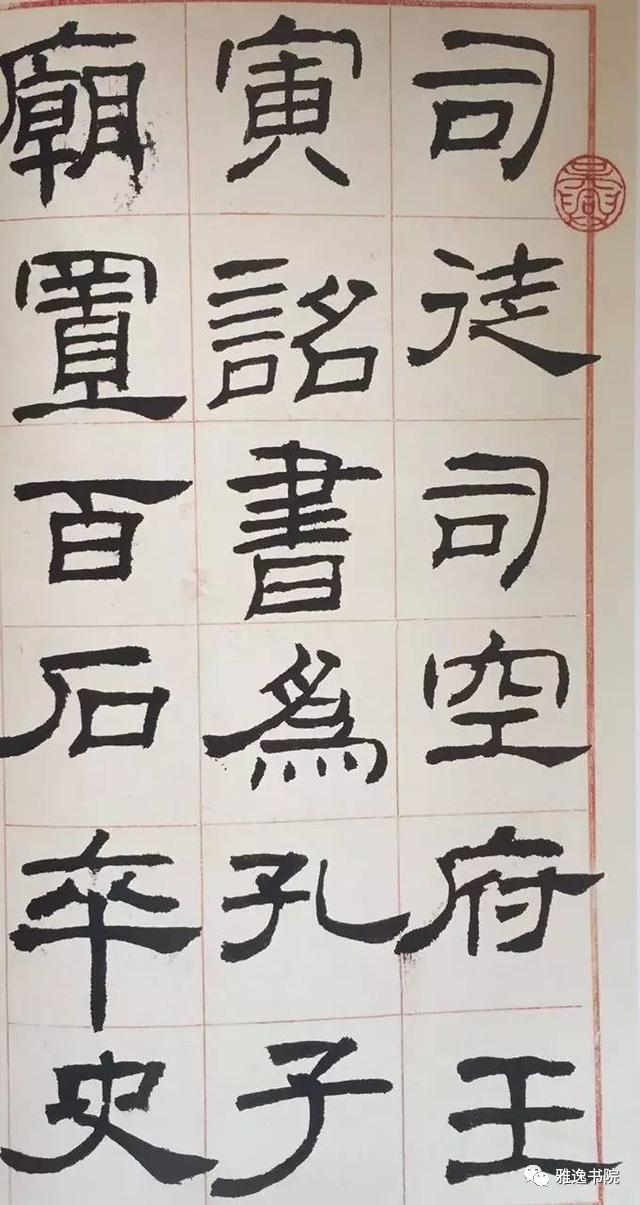 司徒司空府王
寅詔書為孔子
廟置百石卒史
雅逸书院